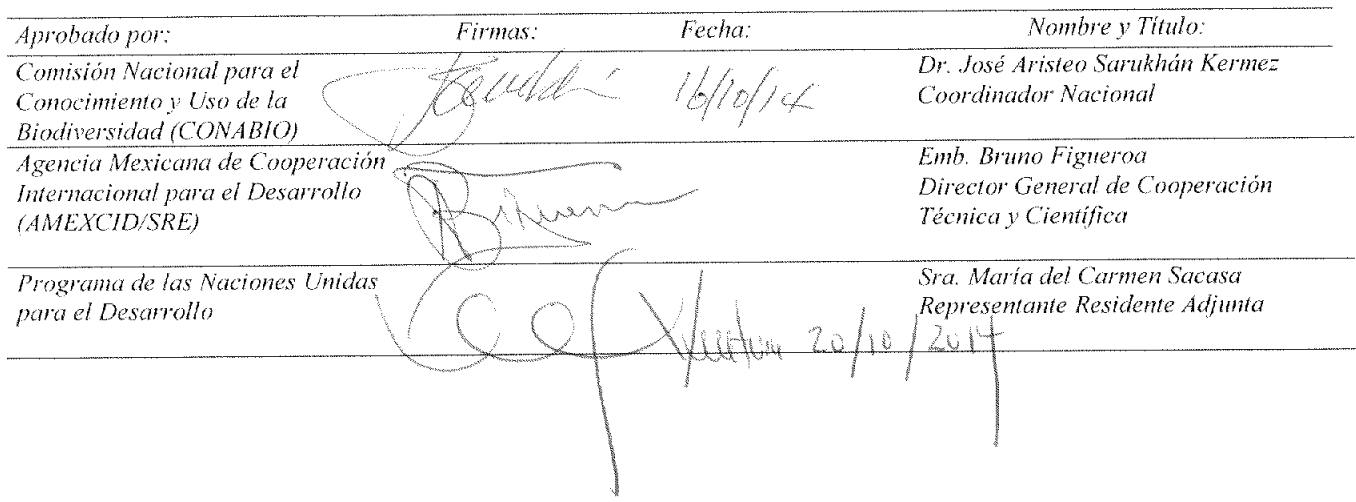 Aprobado por: Firmas: Fecha: Nombre y Título:
Comisión Nacional para el
Conocimiento y Uso de la
Biodiversidad (CONABIO)
16/10/14
Dr. José Aristeo Sarukhán Kermez
Coordinador Nacional
Agencia Mexicana de Cooperación
Internacional para el Desarrollo
(AMEXCID/SRE)
Emb. Bruno Figueroa
Director General de Cooperación
Técnica y Científica
Programa de las Naciones Unidas
para el Desarrollo
20/10/2014
Sra. María del Carmen Sacasa
Representante Residente Adjunta